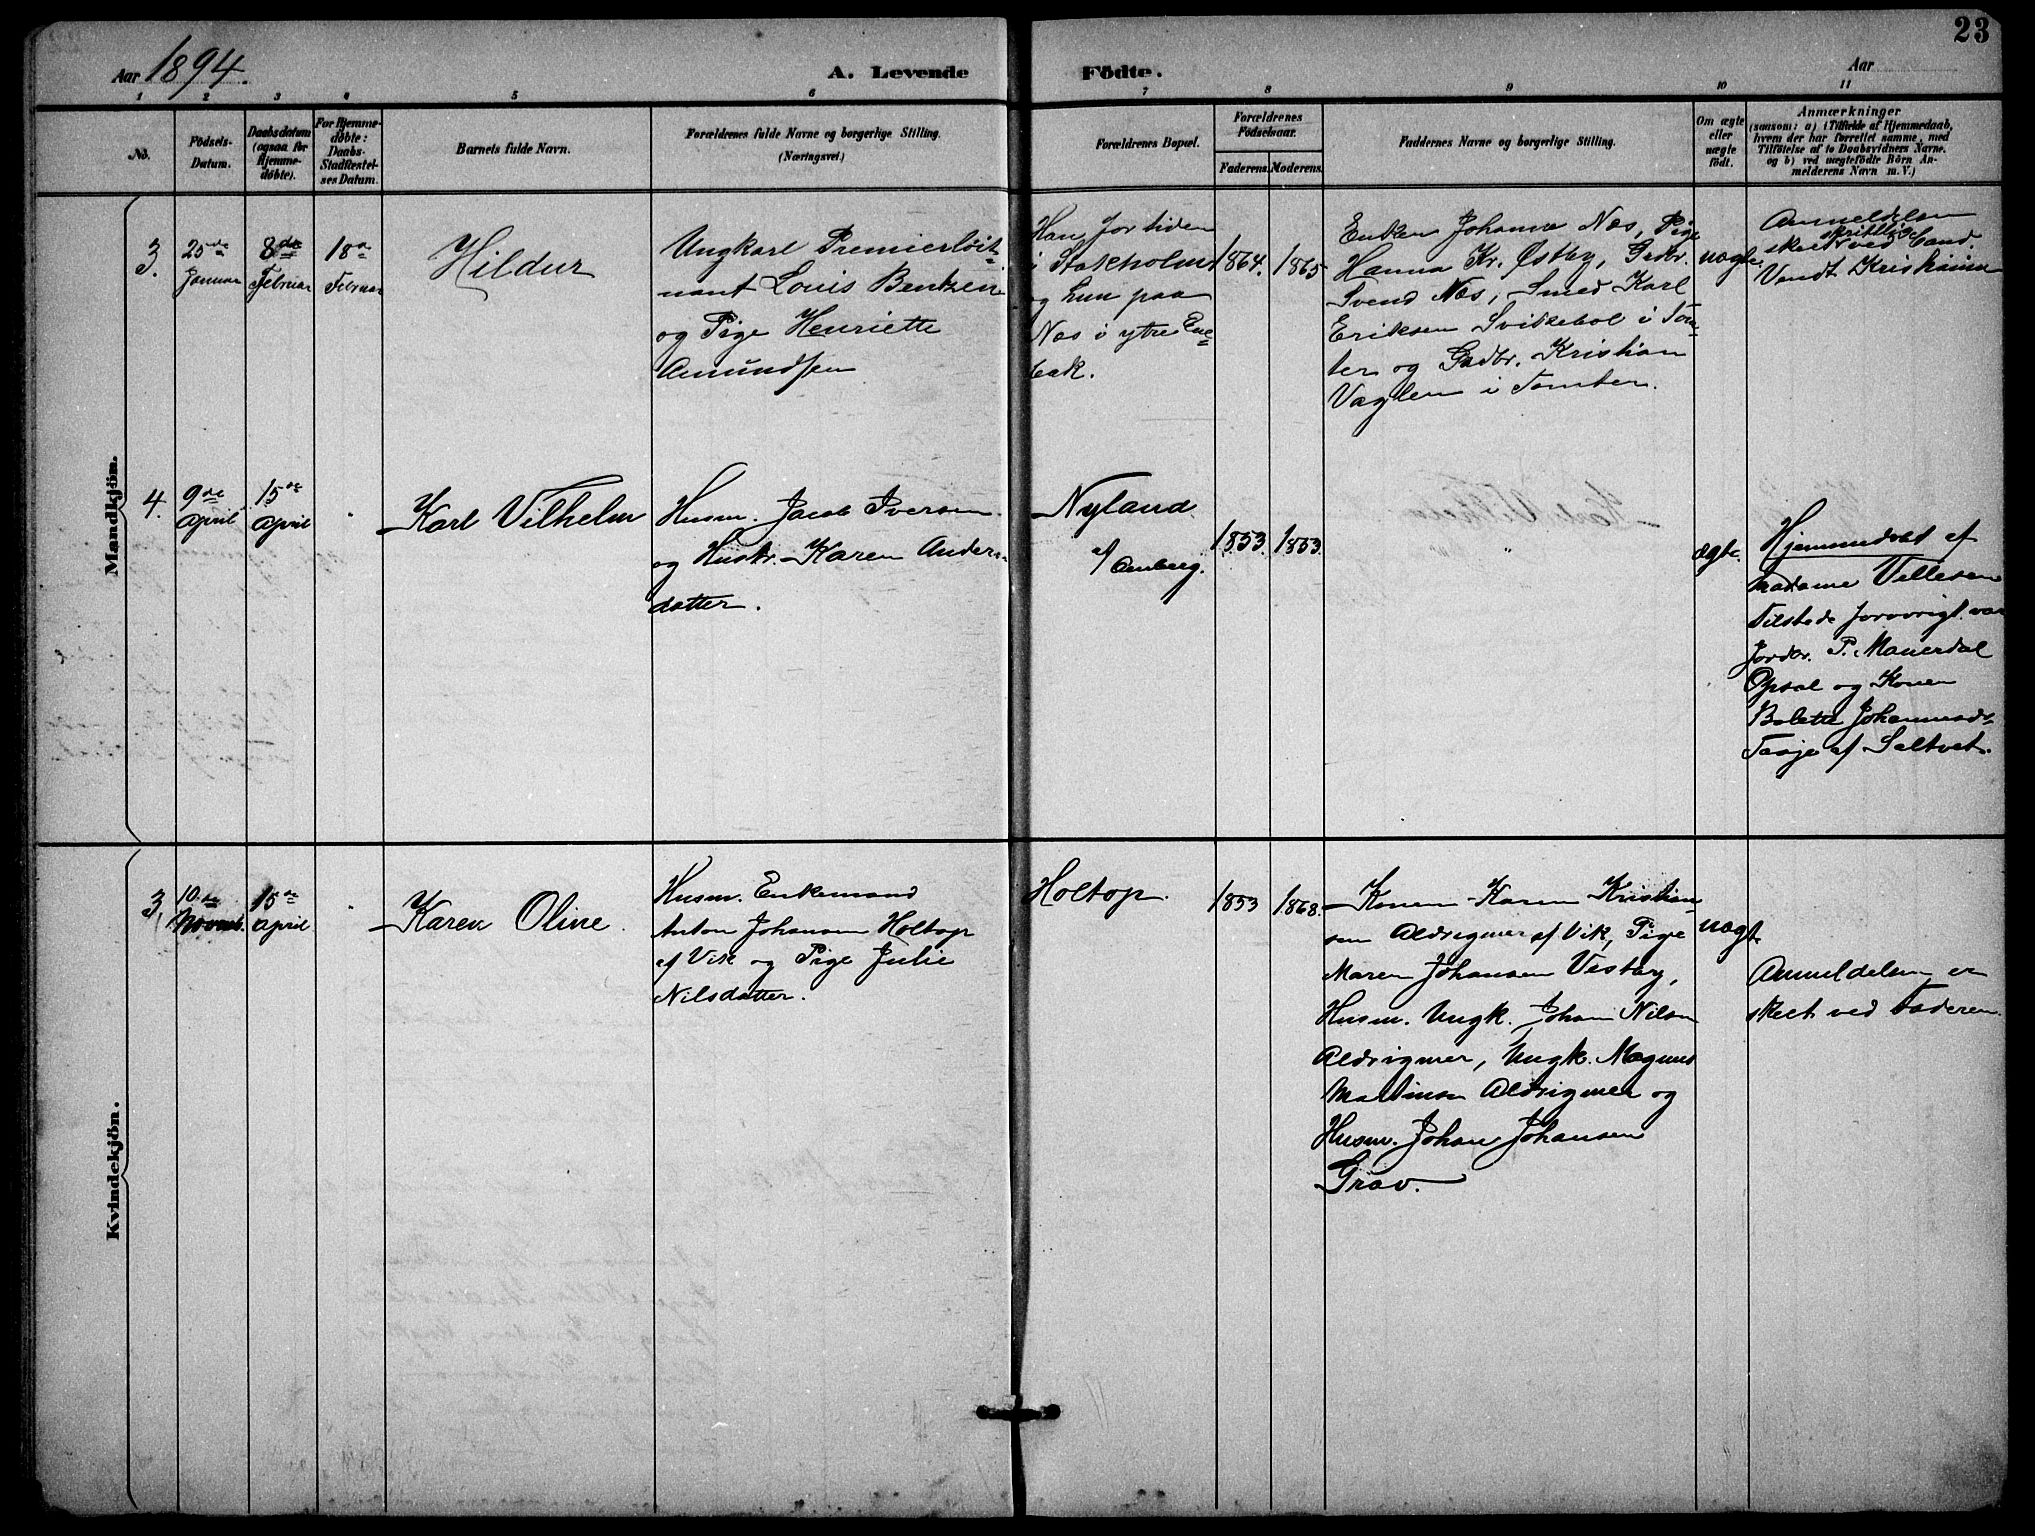 23
Aar 1894.
A. Levende Födte.
Aar
1 2 3 4 5 6 7 8 9 10 11
No.
Födsels-
Datum.
Daabsdatum
(ogsaa for
Hjemme-
döbte).
For Hjemme-
döbte:
Daabs-
Stadfæstel-
ses Datum.
Barnets fulde Navn.
Forældrenes fulde Navne og borgerlige Stilling.
(Næringsvei.)
Forældrenes Bopæl.
Forældrenes
Födselsaar.
Faderens.
Moderens.
Faddernes Navne og borgerlige Stilling.
Om ægte
eller
uægte
födt.
Anmærkninger
(saasom: a) i Tilfælde af Hjemmedaab,
hvem der har forrettet samme, med
Tilföielse af to Daabsvidners Navne.
og b) ved uægtefödte Börn An-
melderens Navn m. V.)
Mandkjön.
3.
25de
Januar
8de
Februar
18de
Februar
Hildur
Ungkarl Premierløit-
nant Louis Bentzen
og Pige Henriette
Amundsen
Han for tiden
i Stokholm
og hun paa
Næs i ytre Ene-
bak.
1864.
1865
Enken Johanna Næs, Pige
Hanna Kr. Østby, Gadbr.
Svend Næs, Smed Karl
Eriksen Svikkebøl i Tom-
ter og Gadbr. Kristian
Vaglen i Tomter.
uægte
Anmeldelsen
skriftlig
skeet ved Cand.
Vendt Kristiania
4.
9de
April
15de
April
Karl Vilhelm
Husm. Jacob Iversen
og Hustr. Karen Anders-
datter.
Nyland
af
1853.
1853.
ægte.
Hjemmedøbt af
Madame Villesen
Tilstede forøvrigt var
Jordbr. P. Mauerdal
Opsal og Konen
Bolette Johannesd-
Taaje af Saltvet.
Kvindekjön.
3,
10de
Novemb.
15de
April
Karen Oline.
Husm. Enkemand
Anton Johansen Holtop
af Vik og Pige Julie
Nilsdatter.
Holtop.
1853
1868.
Konen Karen Kristian-
sen Aldrigmer af Vik, Pige
Maren Johansen Vestby,
Husm. Ungk. Johan Nilsen
Aldrigmer, Ungk. Magnus
Martinsen Aldrigmer og
Husm. Johan Johansen
Grav.
uægt.
Anmeldelsen er
skeet ved Faderen.